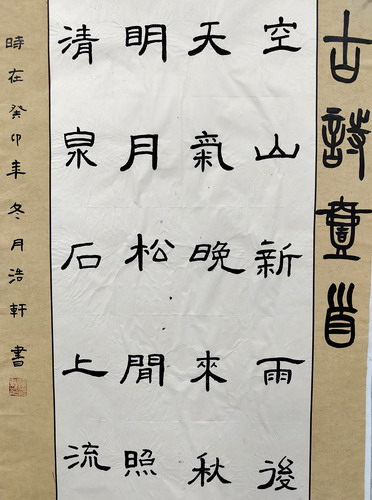 古詩壹首
空山新雨後
天氣晚來秋
明月松閒照
清泉石上流
時在癸卯年冬月浩軒書